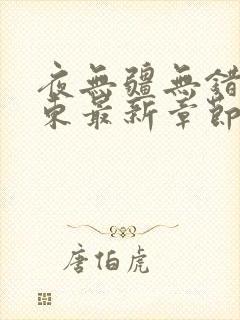 夜無疆無錯
東最新章節
唐伯虎